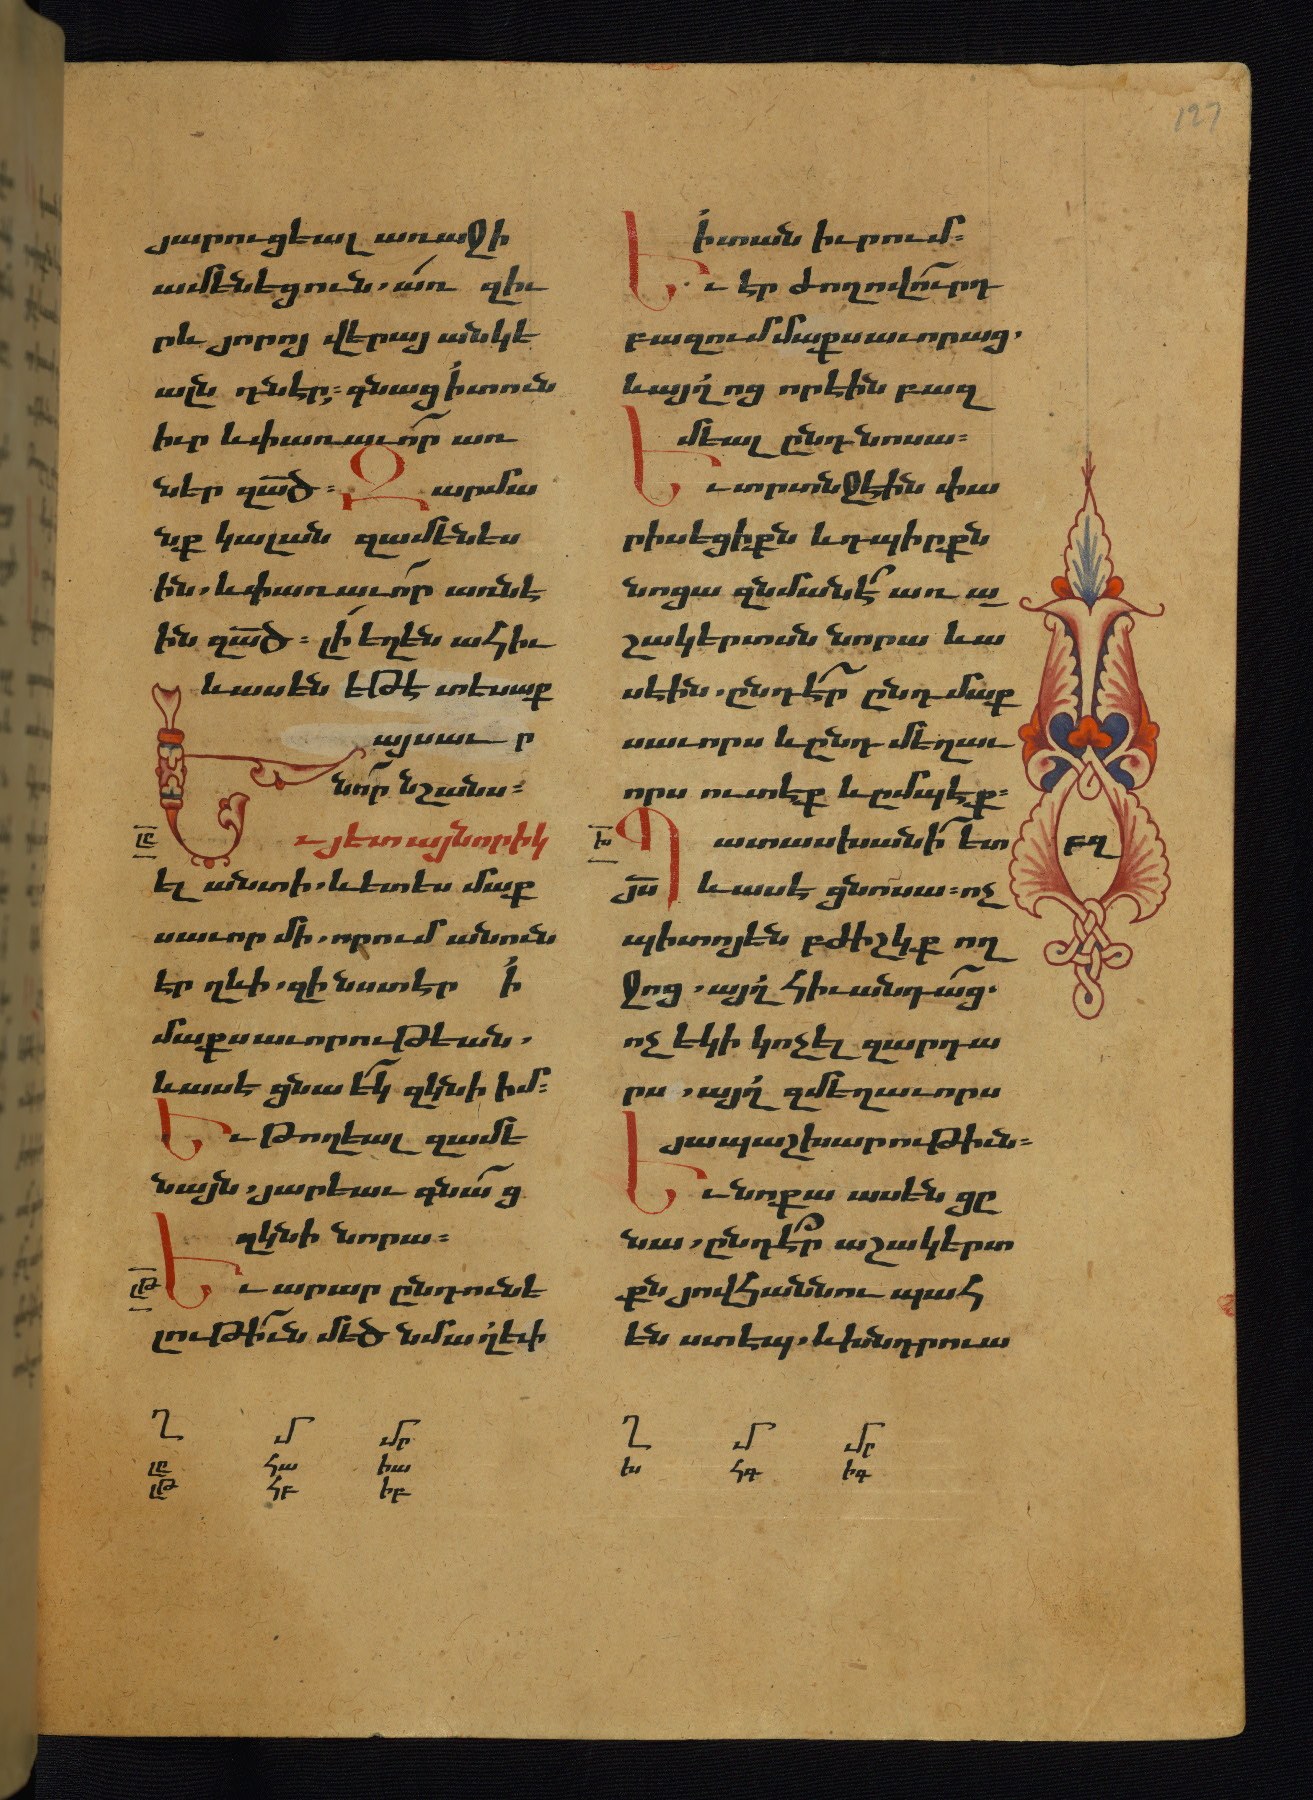 127
յարուցեալ առաջի
ամենեցուն, առ զիւ
րև յորոյ վերայ անկե
ալն դնէր։ գնաց ի տուն
իւր և փառաւոր առ
նէր զած։ Զարմա
նք կալան զամենես
ին, և փառաւոր առնէ
ին զած։ լի եղեն ահիւ
և ասեն եթէ տեսաք
այսաւր
նոր նշանս։
լը
Ւ յետ այնորիկ
ել անտի, և ետես մաք
սաւոր մի, որում անուն
էր ղևի, զի նստէր ի
մաքսաւորութեան,
և ասէ ցնա եկ զկնի իմ։
Եւ թողեալ զամե
նայն, յարեաւ գնաց
զկնի նորա։
լթ
Եւ արար ընդունե
լութիւն մեծ նմա ղևի
Ղ Մ Մր
լը հա իա
լթ հբ իբ
ի տան իւրում։
Եւ էր ժողովուրդ
բազում մաքսաւորաց,
և այղ ոց որ էին բազ
մեալ ընդ նոսա։
Եւ տրտնջէին փա
րիսեցիքն և դպիրքն
նոցա զնմանէ առ ա
շակերտսն նորա և ա
սէին, ընդէր ընդ մաք
սաւորս և ընդ մեղաւ
որս ուտէք և ըմպէք։
խ
Պատասխանի ետ
յս և ասէ ցնոսա։ ոչ
պիտոյ են բժիշկք ող
ջոց, այղ հիւանդաց.
ոչ եկի կոչել զարդա
րս, այղ զմեղաւորս
յապաշխարութիւն։
Եւ նոքա ասեն ցը
նա, ընդէր աշակերտ
քն յովհաննու պահ
են ստէպ, և խնդրուա
բղ
Ղ Մ Մր
խ հգ իգ